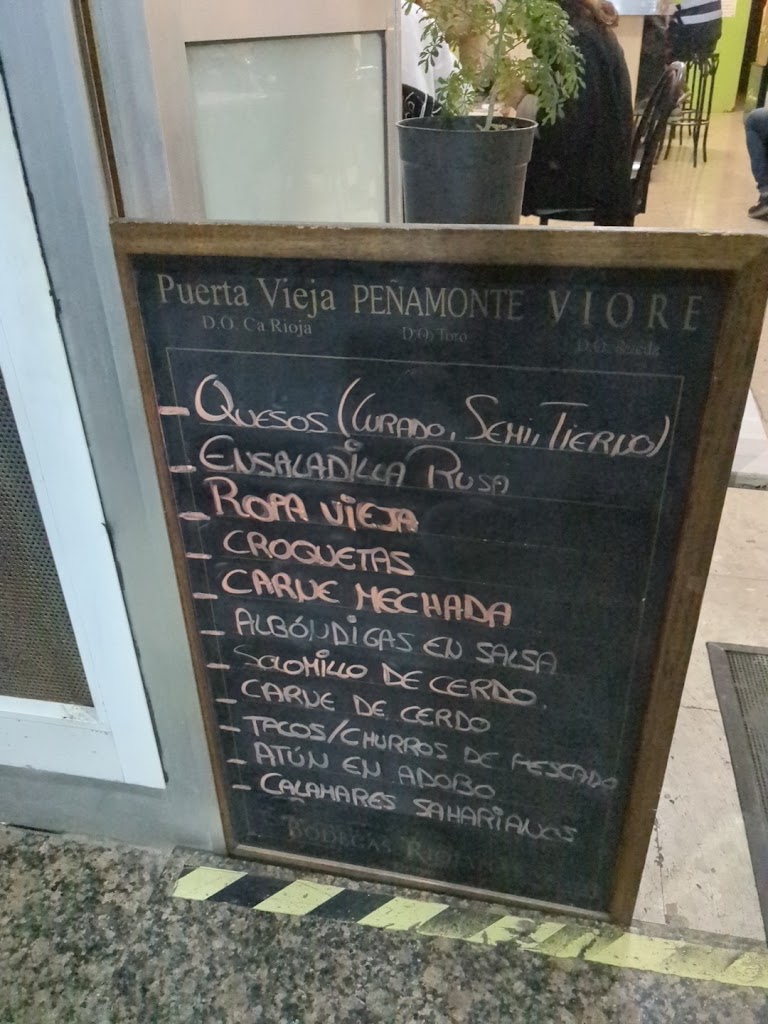 Puerta Vieja PEÑAMONTE VIORE
D.O. Ca Rioja D.O. Toro D.O. Rueda
- QUESOS (CURADO, SEMI, TIERNO)
- ENSALADILLA RUSA
- ROPA VIEJA
- CROQUETAS
- CARNE MECHADA
- ALBÓNDIGAS EN SALSA
- SOLOMILLO DE CERDO.
- CARNE DE CERDO
- TACOS/CHURROS DE PESCADO
- ATÚN EN ADOBO
- CALAMARES SAHARIANOS
BODEGAS